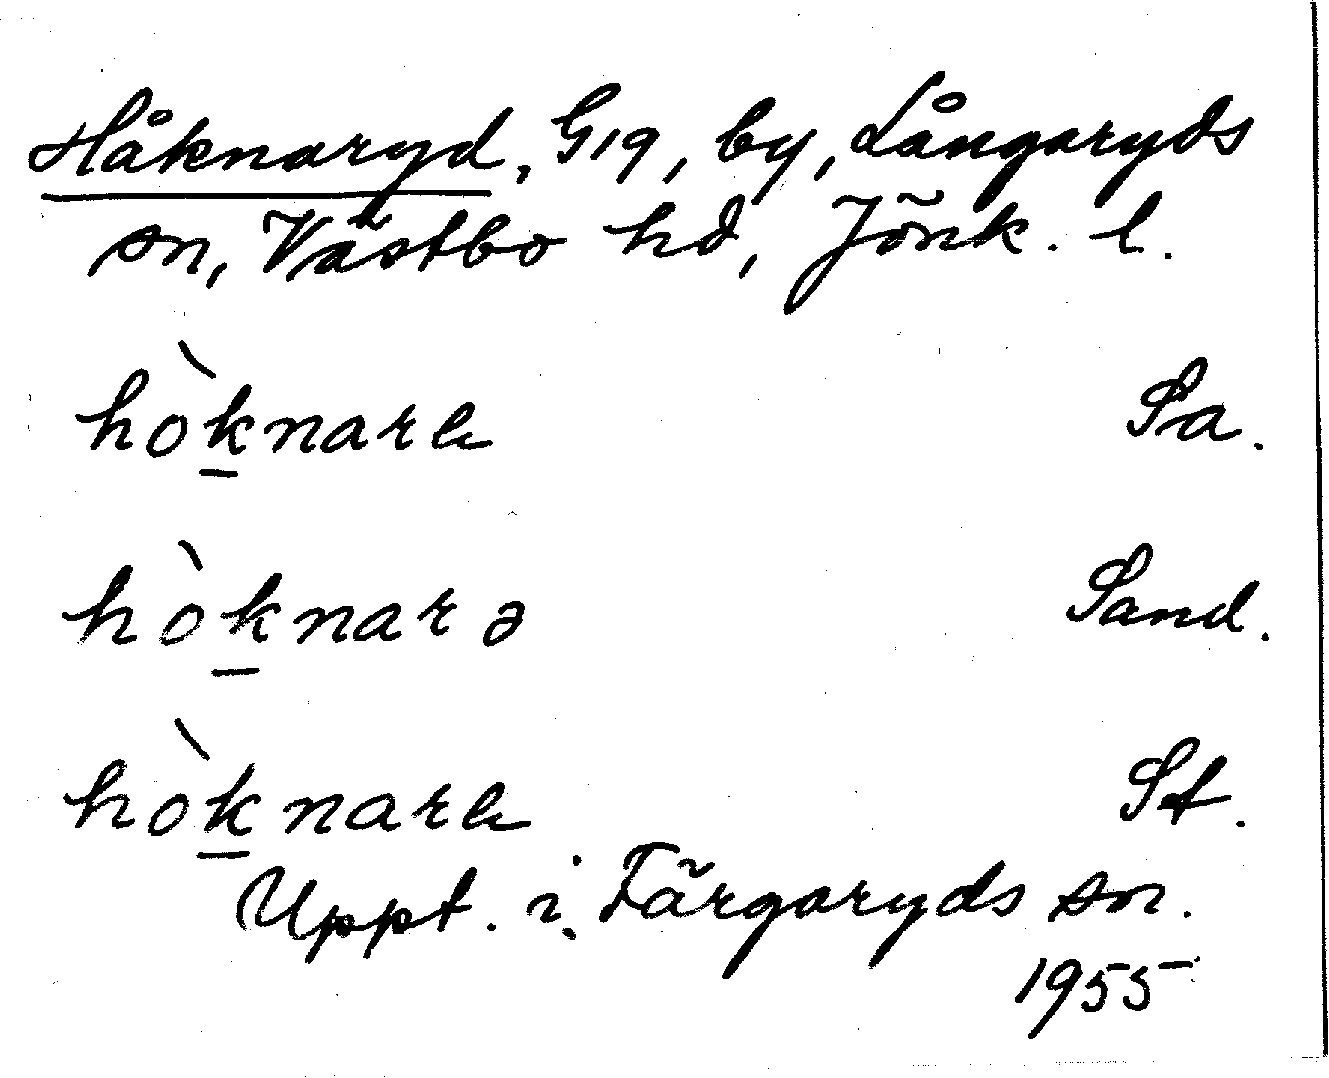 Håknaryd, G19, by, Långaryds
sn, Västbo hd, Jönk. l.
hòknarɐ Sa.
hòknarə Sand.
hòknarɐ St.
Uppt. i Färgaryds sn.
1955